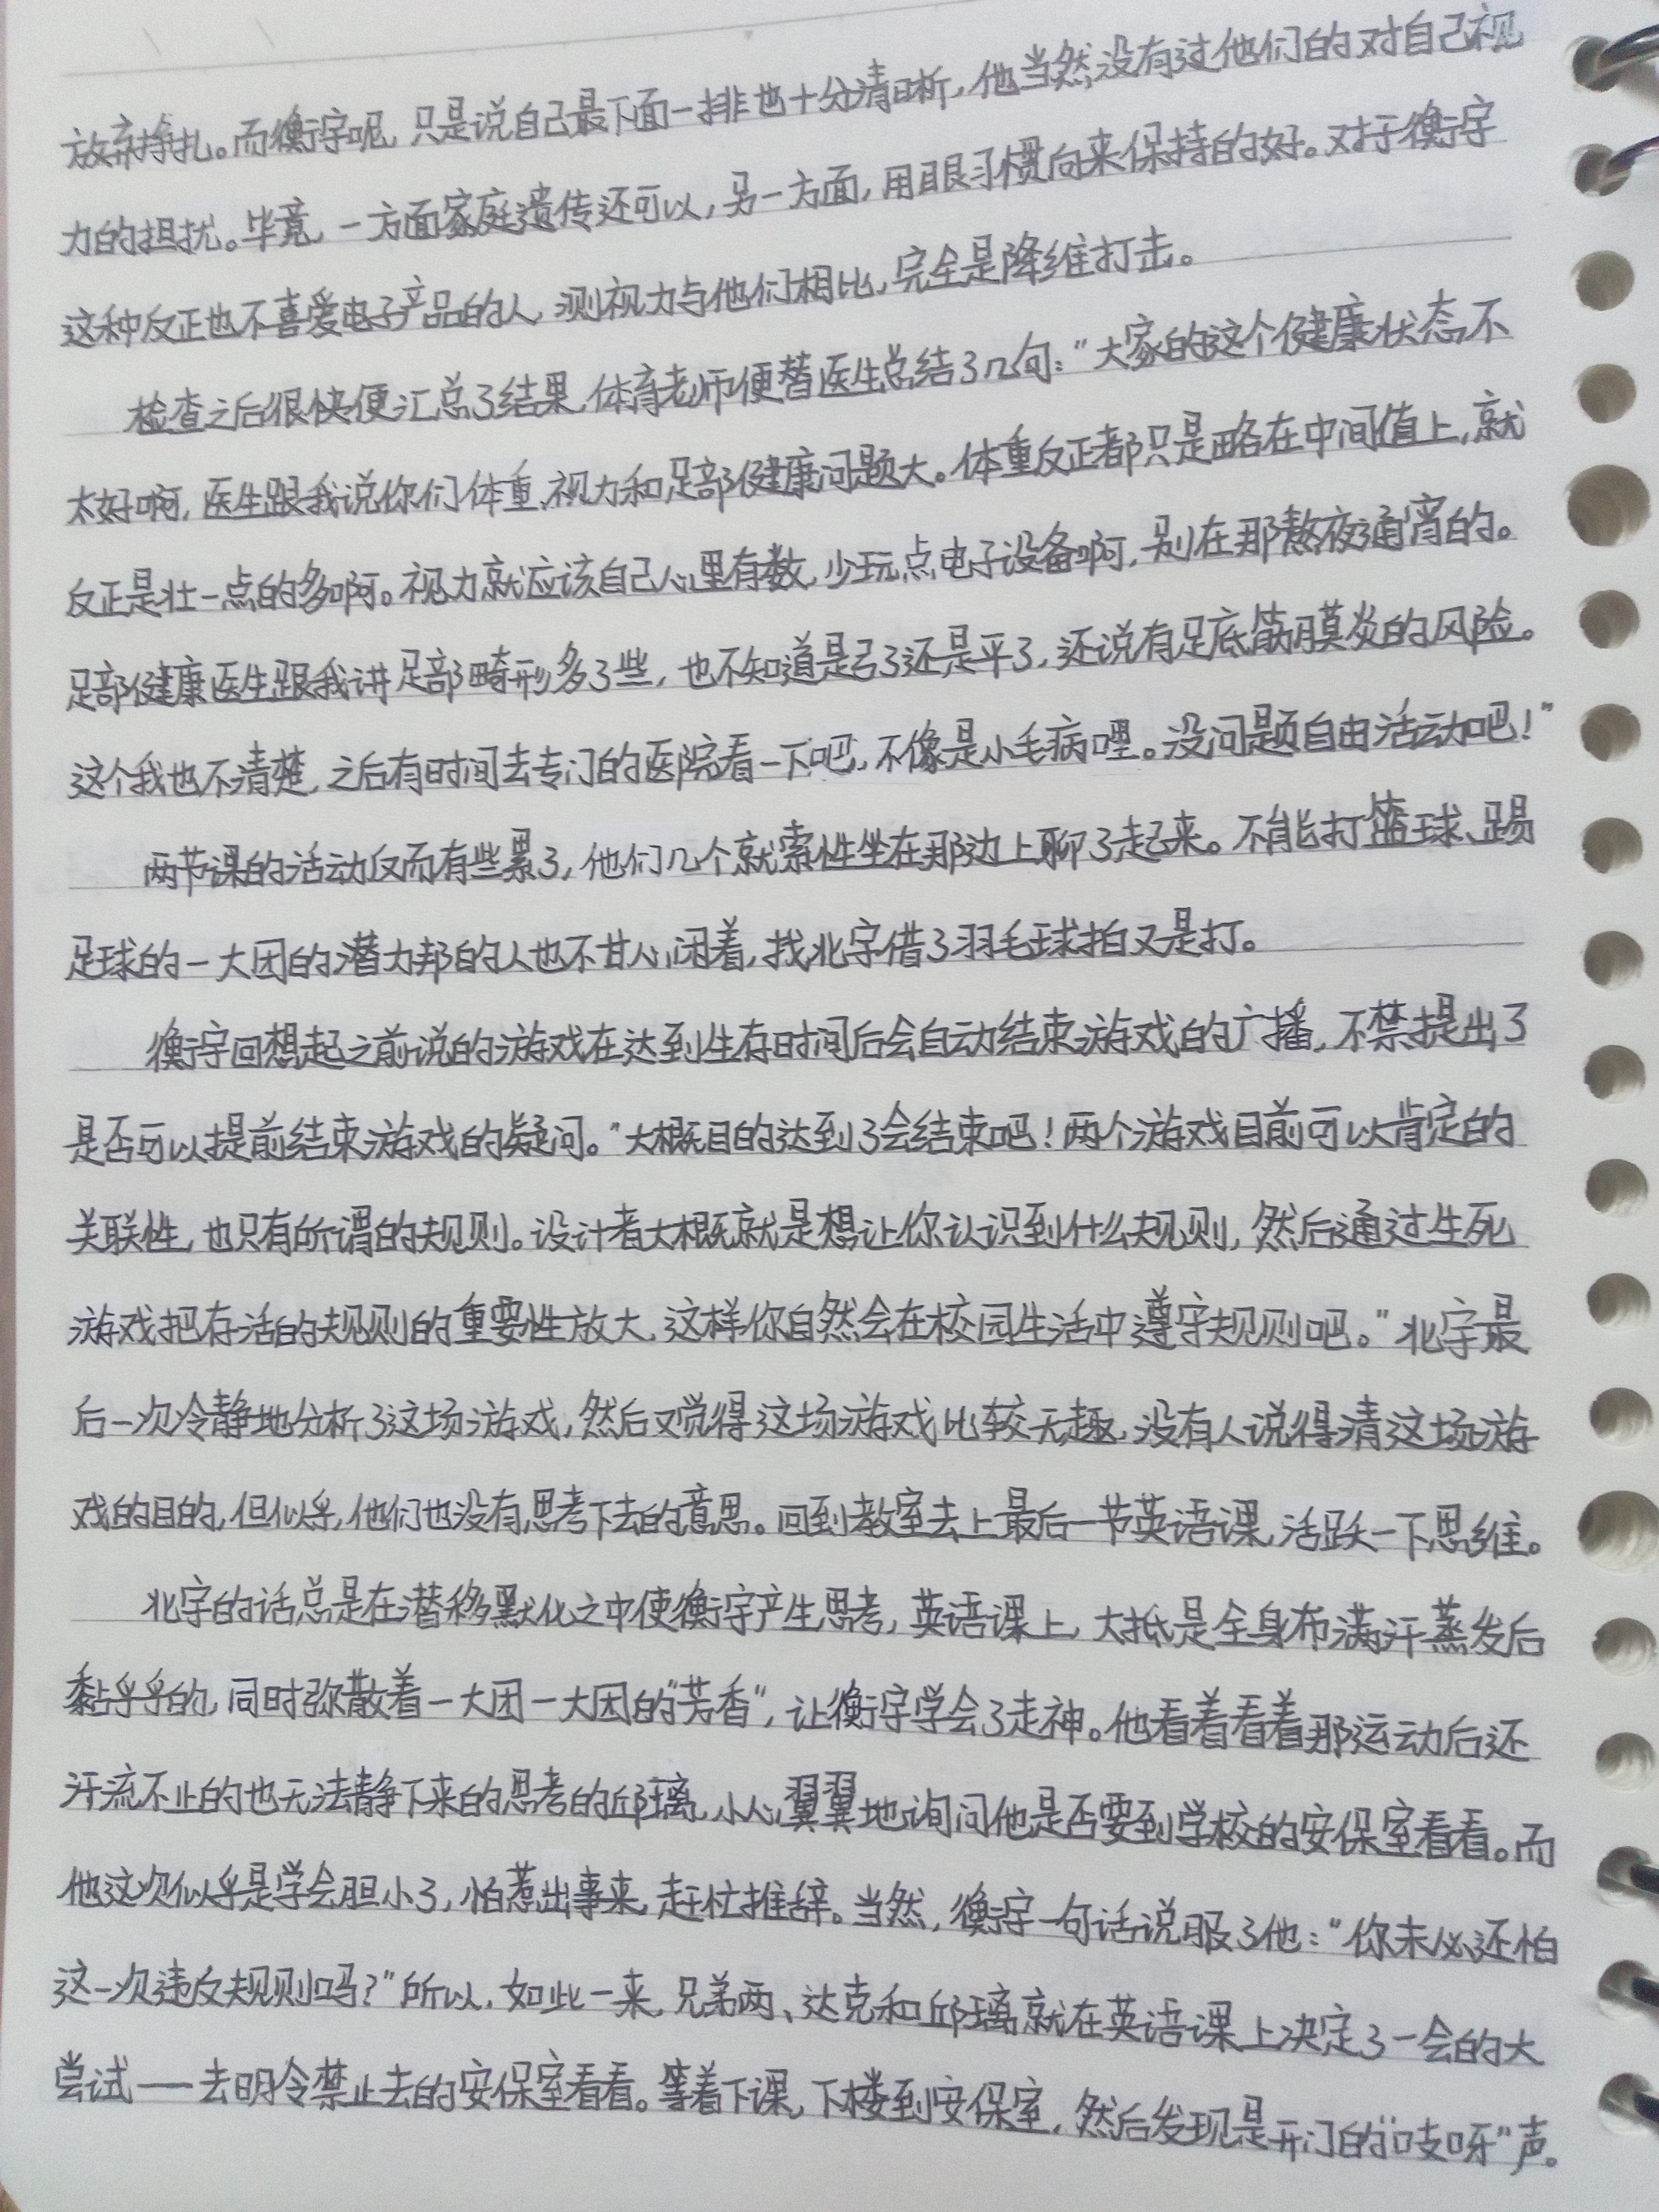 放弃挣扎。而衡宇呢,只是说自己最下面一排也十分清晰,他当然没有过他们的对自己视
力的担扰。毕竟,一方面家庭遗传还可以,另一方面,用眼习惯向来保持的好。对于衡宇
这种反正也不喜爱电子产品的人,测视力与他们相比,完全是降维打击。
检查之后很快便汇总了结果,体育老师便替医生总结了几句:“大家的这个健康状态不
太好啊,医生跟我说你们体重、视力和足部健康问题大。体重反正都只是略在中间值上,就
反正是壮一点的多啊。视力就应该自己心里有数,少玩点电子设备啊,别在那熬夜通宵的。
足部健康医生跟我讲足部畸形多了些,也不知道是弓了还是平了,还说有足底筋膜炎的风险。
这个我也不清楚,之后有时间去专门的医院看一下吧,不像是小毛病哩。没问题自由活动吧!”
两节课的活动反而有些累了,他们几个就索性坐在那边上聊了起来。不能打篮球、踢
足球的一大团的潜力邦的人也不甘心闲着,找北宇借了羽毛球拍又是打。
衡宇回想起之前说的游戏在达到生存时间后会自动结束游戏的广播,不禁提出了
是否可以提前结束游戏的疑问。“大概目的达到了会结束吧!两个游戏目前可以肯定的
关联性,也只有所谓的规则。设计者大概就是想让你认识到什么规则,然后通过生死
游戏把存活的规则的重要性放大,这样你自然会在校园生活中遵守规则吧。”北宇最
后一次冷静地分析了这场游戏,然后又觉得这场游戏比较无趣,没有人说得清这场游
戏的目的,但似乎,他们也没有思考下去的意思。回到教室去上最后一节英语课,活跃一下思维。
北宇的话总是在潜移默化之中使衡宇产生思考,英语课上,大抵是全身布满汗蒸发后
黏乎乎的,同时弥散着一大团一大团的“芳香”,让衡宇学会了走神。他看着看着那运动后还
汗流不止的也无法静下来的思考的邱璃,小心翼翼地询问他是否要到学校的安保室看看。而
他这次似乎是学会胆小了,怕惹出事来,赶忙推辞。当然,衡宇一句话说服了他:“你未必还怕
这一次违反规则吗?”所以,如此一来,兄弟两、达克和邱璃就在英语课上决定了一会的大
尝试——去明令禁止去的安保室看看。等着下课,下楼到安保室,然后发现是开门的“吱呀”声。